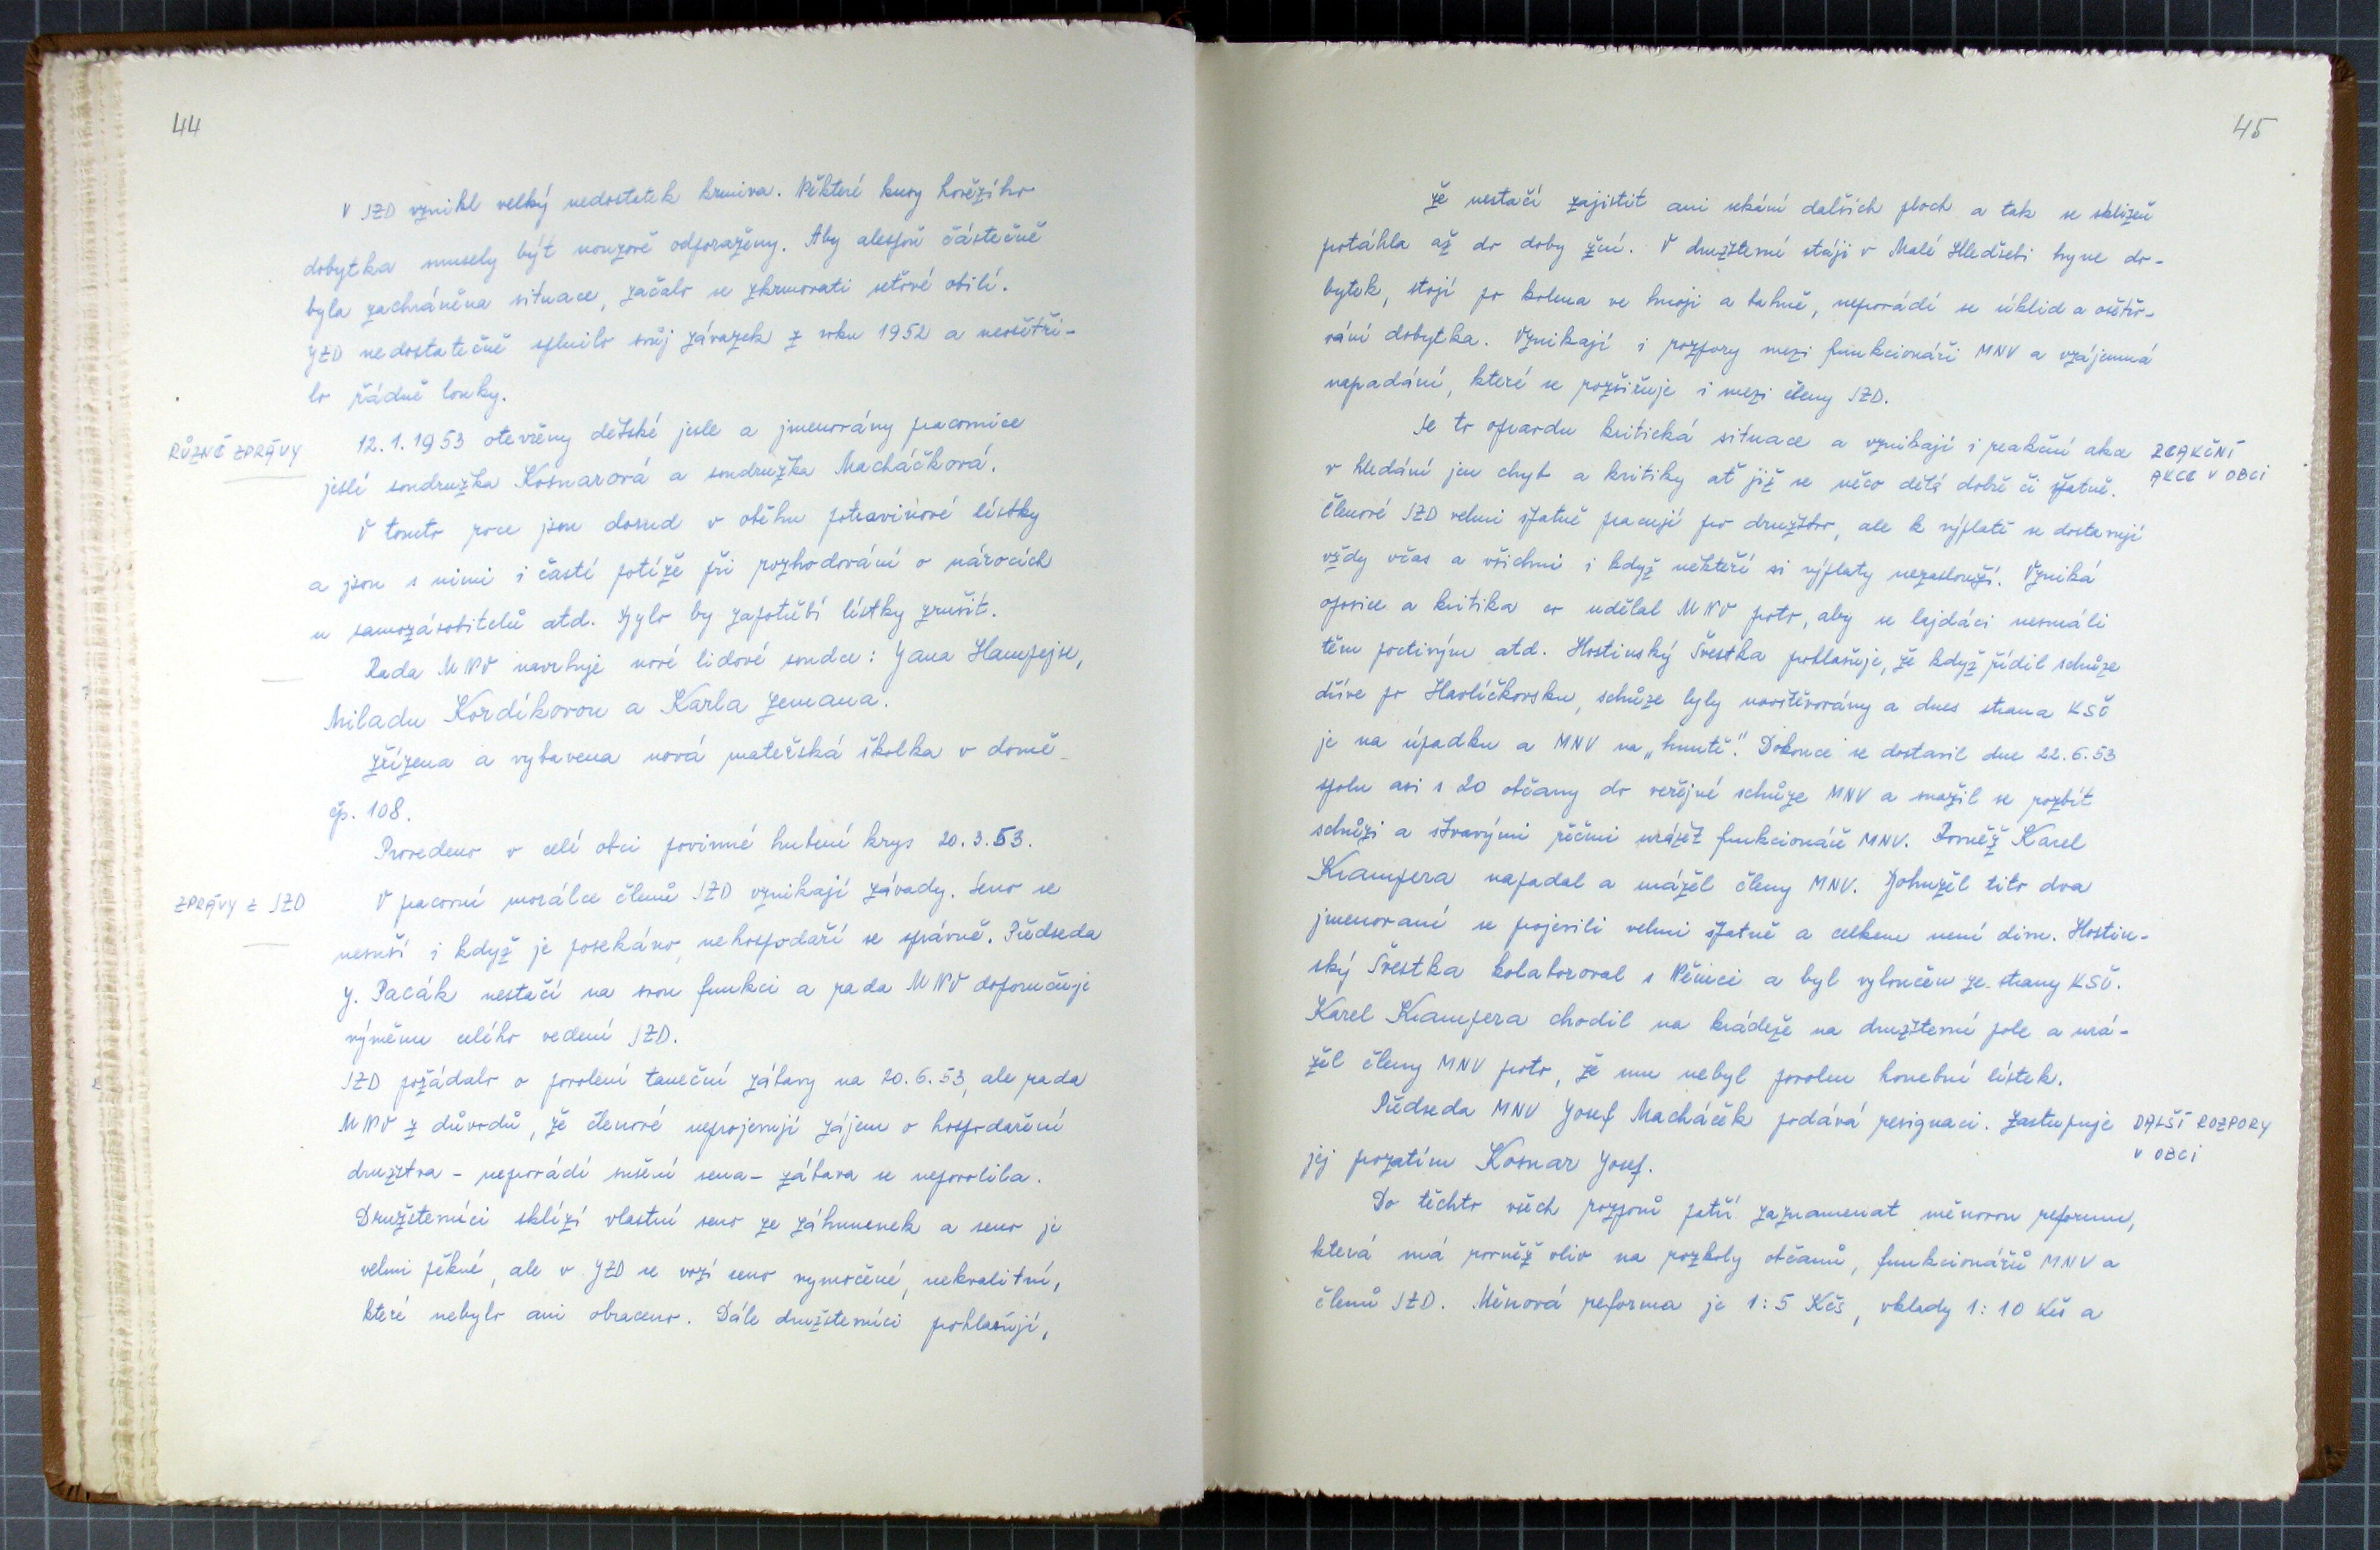 44
V JZD vznikl velký nedostatek krmiva. Některé kusy hovězího
dobytka musely být nouzově odporaženy. Aby alespoň částečně
byla zachráněna situace, začalo se zkrmovati seťové obilí.
JZD nedostatečně splnilo svůj závazek z roku 1952 a neošetři-
lo řádně louky.
RŮZNÉ ZPRÁVY
12.1.1953 otevřeny dětské jesle a jmenovány pracovnice
jeslí soudružka Kosnarová a soudružka Macháčková.
V tomto roce jsou dosud v oběhu potravinové lístky
a jsou s nimi i časté potíže při rozhodování o nárocích
u samozásobitelů atd. Bylo by zapotřebí lístky zrušit.
Rada MNV navrhuje nové lidové soudce: Jana Hampejse,
Miladu Kordíkovou a Karla Zemana.
Zřízena a vybavena nová mateřská školka v domě
čp. 108.
Provedeno v celé obci povinné hubení krys 20.3.53.
ZPRÁVY Z JZD
V pracovní morálce členů JZD vznikají závady. Seno se
nesuší i když je posekáno, nehospodaří se správně. Předseda
J. Pacák nestačí na svou funkci a rada MNV doporučuje
výměnu celého vedení JZD.
JZD požádalo o povolení taneční zábavy na 20.6.53, ale rada
MNV z důvodů, že členové neprojevují zájem o hospodaření
družstva - neprovádí sušení sena - zábava se nepovolila.
Družstevníci sklízí vlastní seno ze záhumenek a seno je
velmi pěkné, ale v JZD se vozí seno vymočené, nekvalitní,
které nebylo ani obraceno. Dále družstevníci prohlašují,
45
že nestačí zajistit ani sekání dalších ploch a tak se sklizeň
potáhla až do doby žní. V družstevné stáji v Malé Hledsebi hyne do-
bytek, stojí po kolena ve hnoji a bahně, neprovádí se úklid a ošetřo-
vání dobytka. Vznikají i rozpory mezi funkcionáři MNV a vzájemná
napadání, které se rozšiřuje i mezi členy JZD.
Je to opravdu kritická situace a vznikají i reakční akce
v hledání jen chyb a kritiky ať již se něco dělá dobře či špatně.
REAKČNÍ
AKCE V OBCI
Členové JZD velmi špatně pracují pro družstvo, ale k výplatě se dostavují
vždy včas a všichni i když někteří si výplaty nezaslouží. Vzniká
oposice a kritika co udělal MNV proto, aby se lajdáci nesmáli
těm poctivým atd. Hostinský Švestka prohlašuje, že když řídil schůze
dříve po Havlíčkovsku, schůze byly navštěvovány a dnes strana KSČ
je na úpadku a MNV na „hnutě". Dokonce se dostavil dne 22.6.53
spolu asi s 20 občany do veřejné schůze MNV a snažil se rozbít
schůzi a štvavými řečmi urážet funkcionáře MNV. Rovněž Karel
Krampera napadal a urážel členy MNV. Bohužel tito dva
jmenovaní se projevili velmi špatně a celkem není divu. Hostin-
ský Švestka kolaboroval s Němci a byl vyloučen ze strany KSČ.
Karel Krampera chodil na krádeže na družstevní pole a urá-
žel členy MNV proto, že mu nebyl povolen honební lístek.
Předseda MNV Josef Macháček podává resignaci. Zastupuje
jej prozatím Kosnar Josef.
DALŠÍ ROZPORY
V OBCI
Do těchto všech rozporů patří zaznamenat měnovou reformu,
která má rovněž vliv na rozkoly občanů, funkcionářů MNV a
členů JZD. Měnová reforma je 1:5 Kčs, vklady 1:10 Kčs a